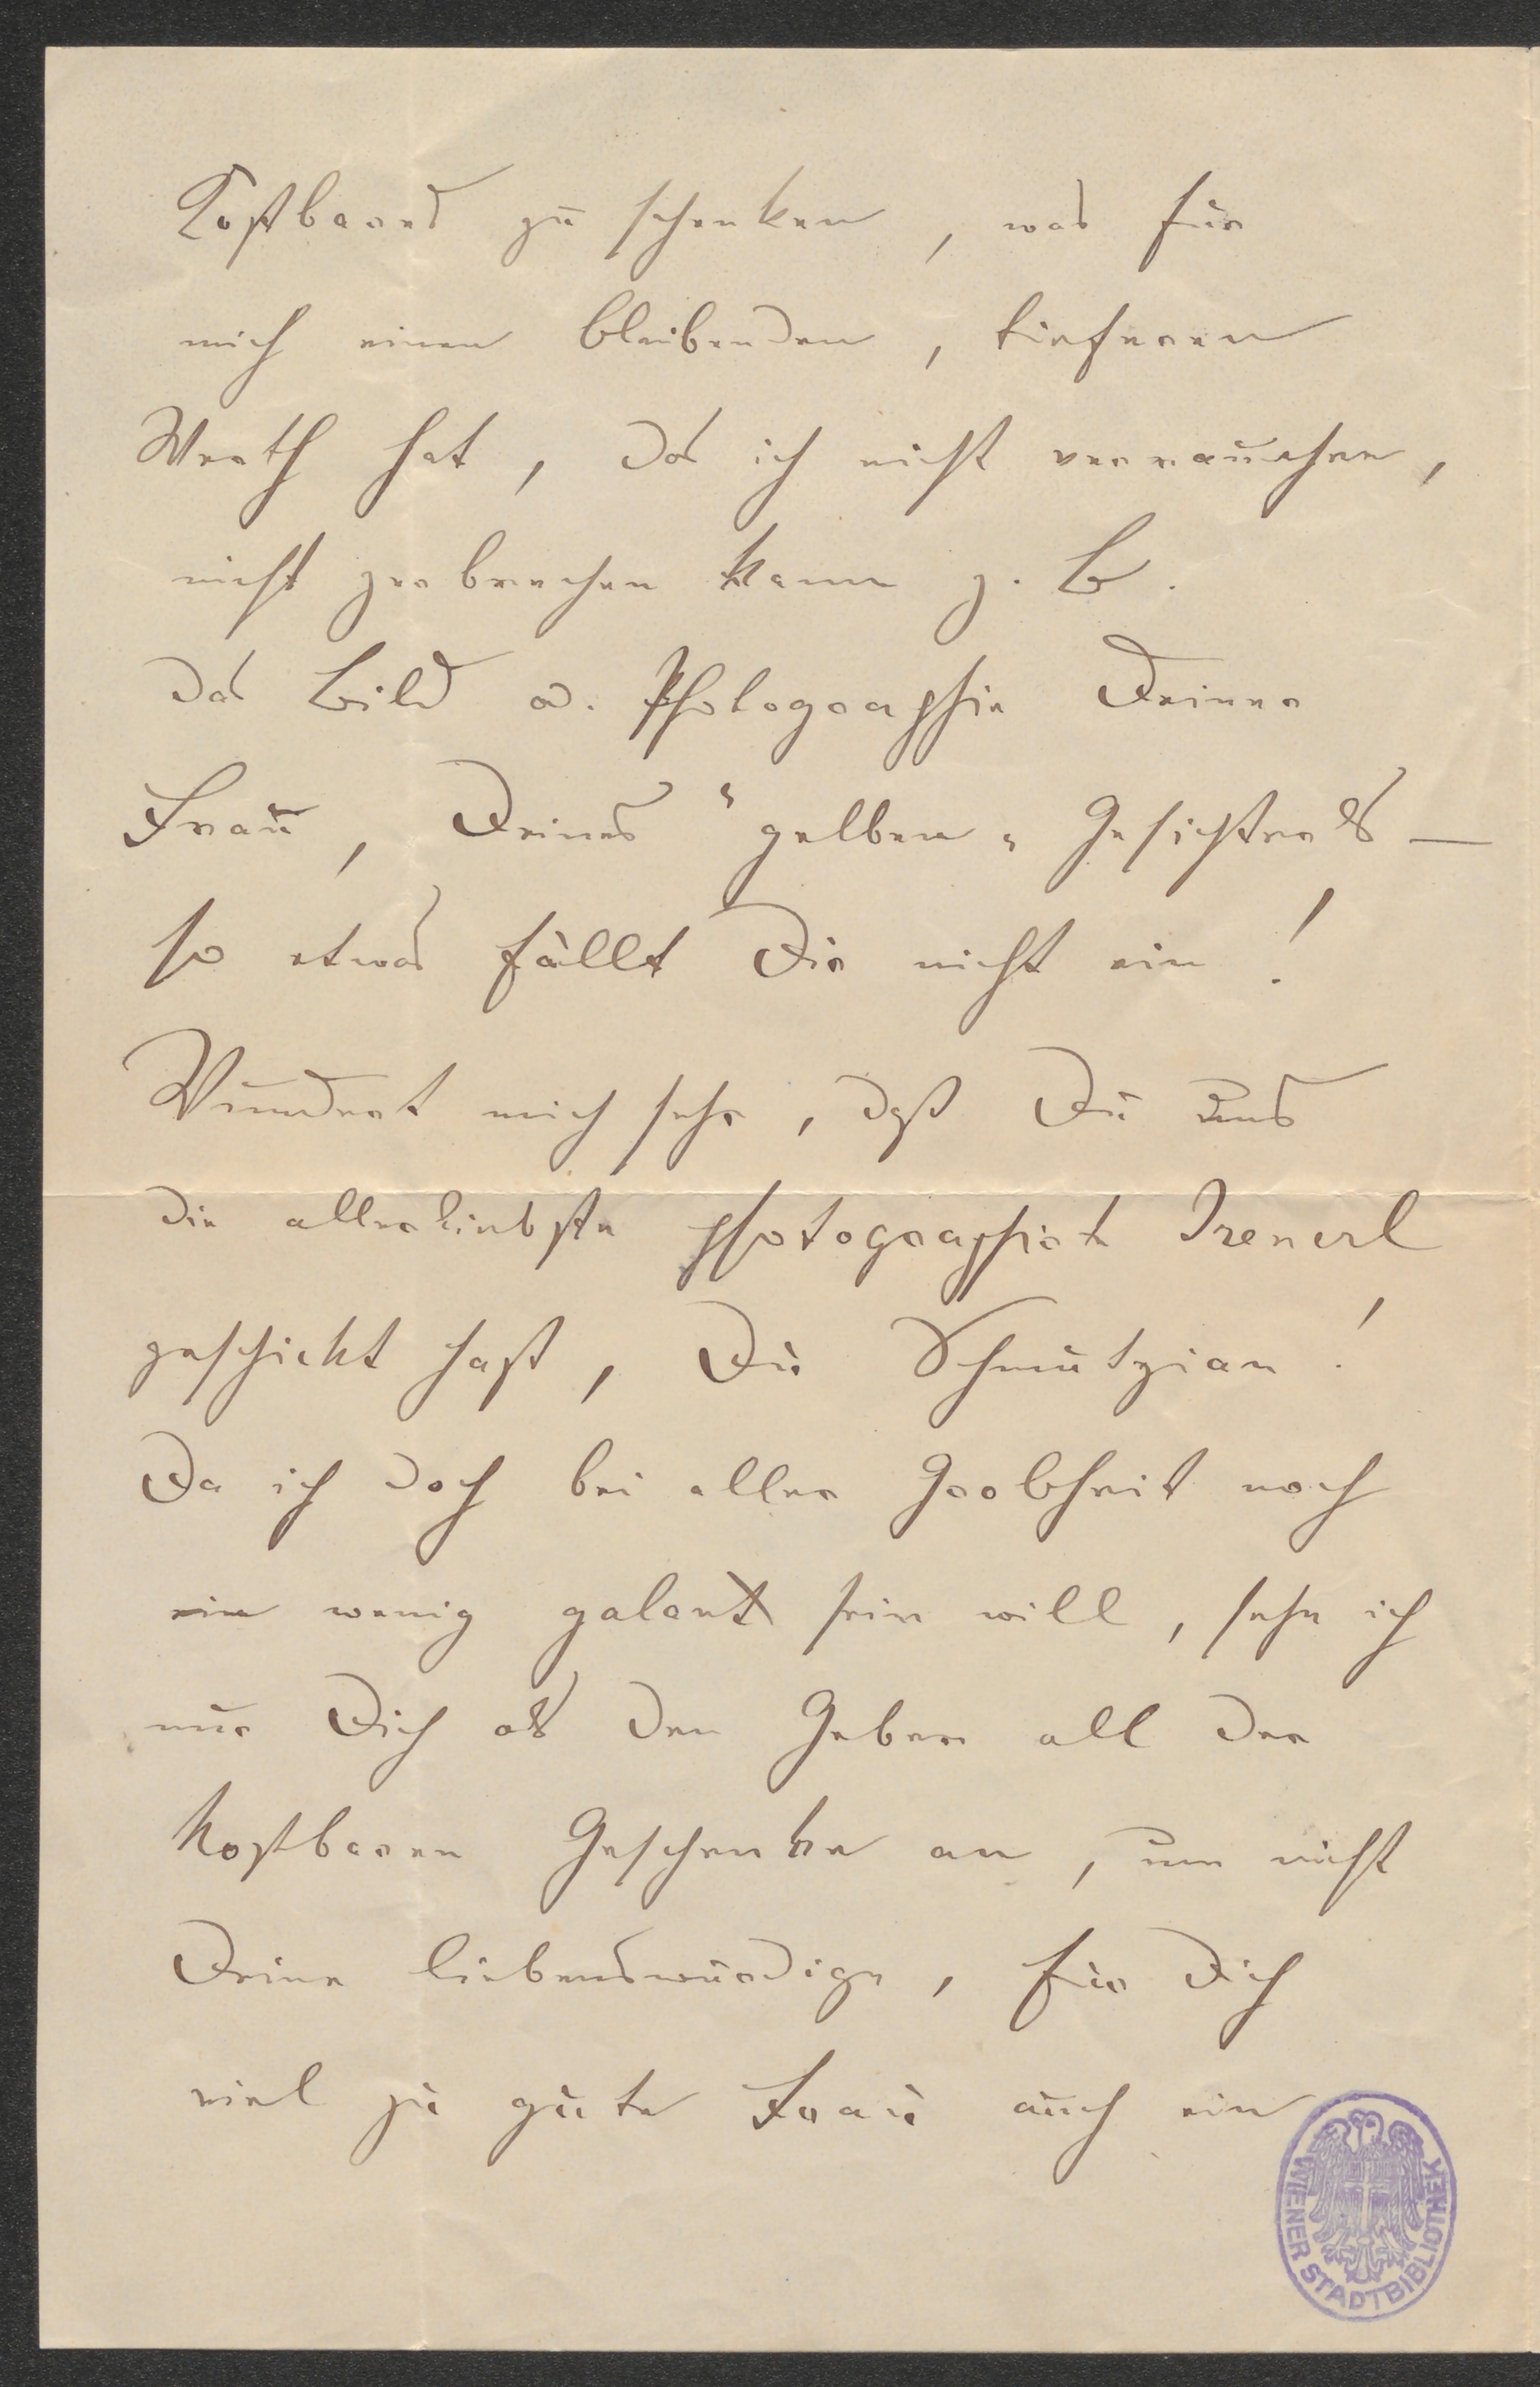 Kostbares zu schenken, was für
mich einen bleibenden, tieferen
Werth hat, das ich nicht verrauchen,
nicht zerbrechen kann z. B.
das Bild o. Photographie Deiner
Frau, Deines "gelben" Gesichterls —
so etwas fällt Dir nicht ein!
Wundert mich sehr, daß Du uns
die allerliebste photographirte Irenerl
geschickt hast, Du Schmutzian!
Da ich doch bei aller Grobheit noch
ein wenig galant sein will, sehe ich
nur Dich als den Geber all der
kostbaren Geschenke an, um nicht
Deine liebenswürdige, für Dich
viel zu gute Frau auch ein
WIENER STADTBIBLIOTHEK